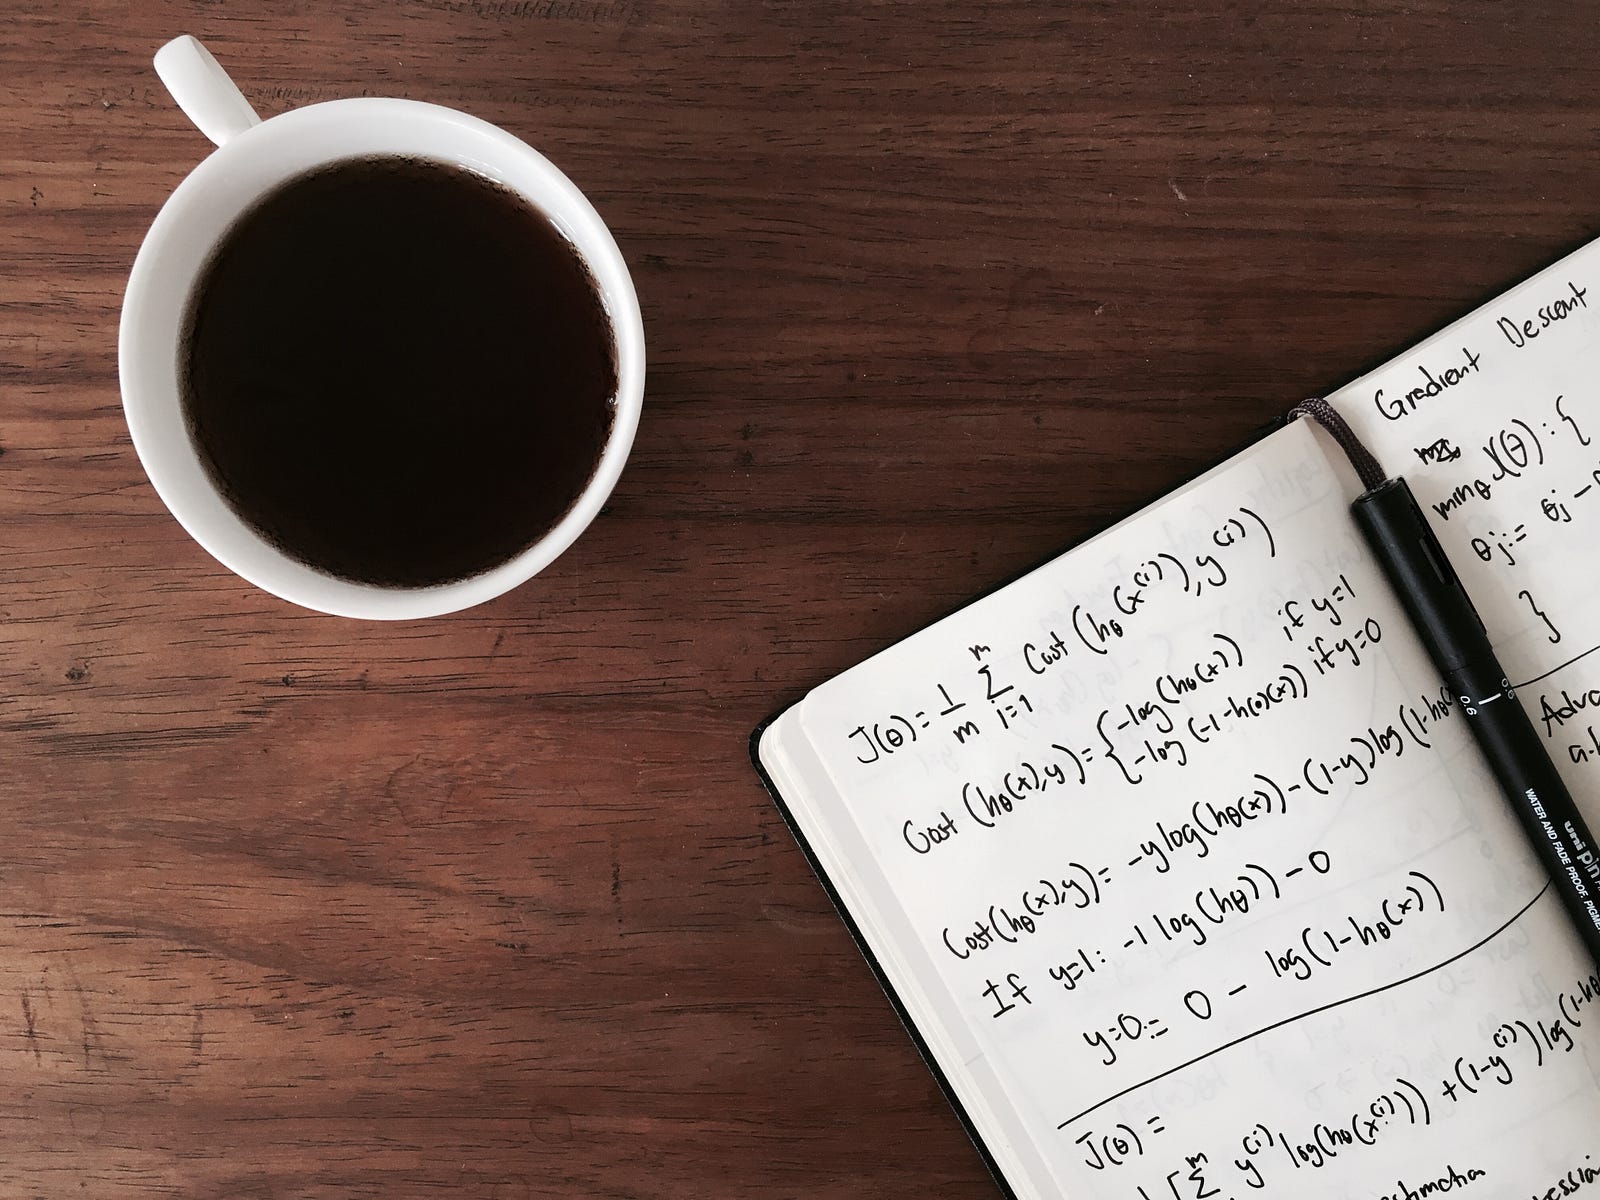 J(θ) = 1/m m Σ i=1 Cost (hθ(x(i)), y(i))
Cost (hθ(x),y) = { -log(hθ(x)) if y=1
-log (-1-h(θ)(x)) if y=0
Cost(hθ(x),y) = -y log(hθ(x)) - (1-y)log(1-hθ
If y=1: -1 log(hθ)) - 0
y=0:= 0 - log(1-hθ(x))
J(θ) =
[ m Σ y(i) log(hθ(x(i))) + (1-y(i)) log(1-hθ
Gradient Descent
minθ J(θ) : {
θj := θj -
}
0.6
uni pin
WATER AND FADE PROOF.